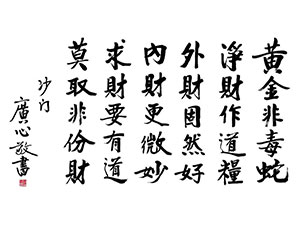 黃金非毒蛇
淨財作道糧
外財固然好
內財更微妙
求財要有道
莫取非份財
沙門
廣心敬書